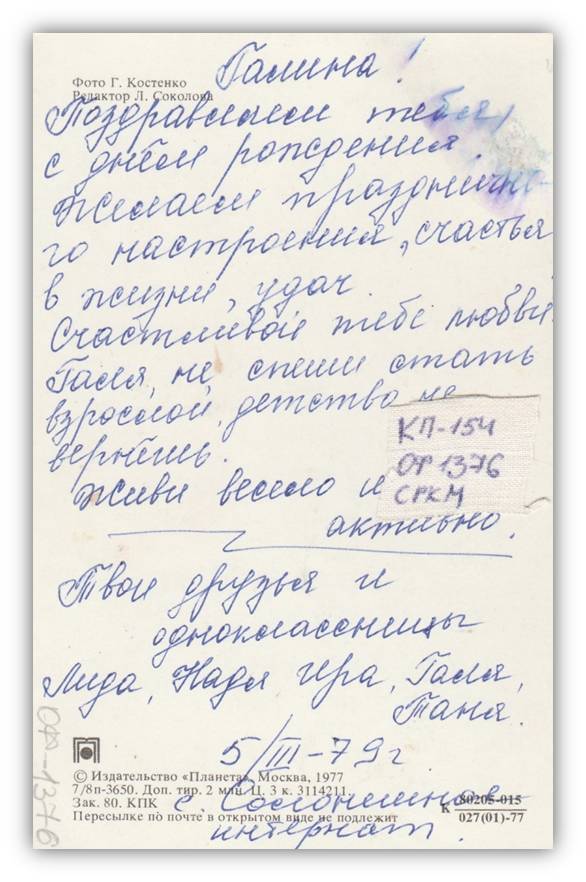 Галина!
Фото Г. Костенко
Редактор Л. Соколова
Поздравляем тебя,
с днём рождения.
Желаем празднично-
го настроения, счастья
в жизни, удач.
Счастливой тебе любви.
Галя, не спеши стать
взрослой, детство не
вернёшь.
Живи весело и
активно.
КП-154
ОФ 1376
СРКМ
Твои друзья и
одноклассницы
Лида, Надя Ира, Галя,
Таня.
5/III-79 г.
© Издательство «Планета», Москва, 1977
7/8п-3650. Доп. тир. 2 млн. Ц. 3 к. 3114211.
Зак. 80. КПК
с.
интернат.
Пересылке по почте в открытом виде не подлежит
К 80205-015
027(01)-77
ОФ-1376